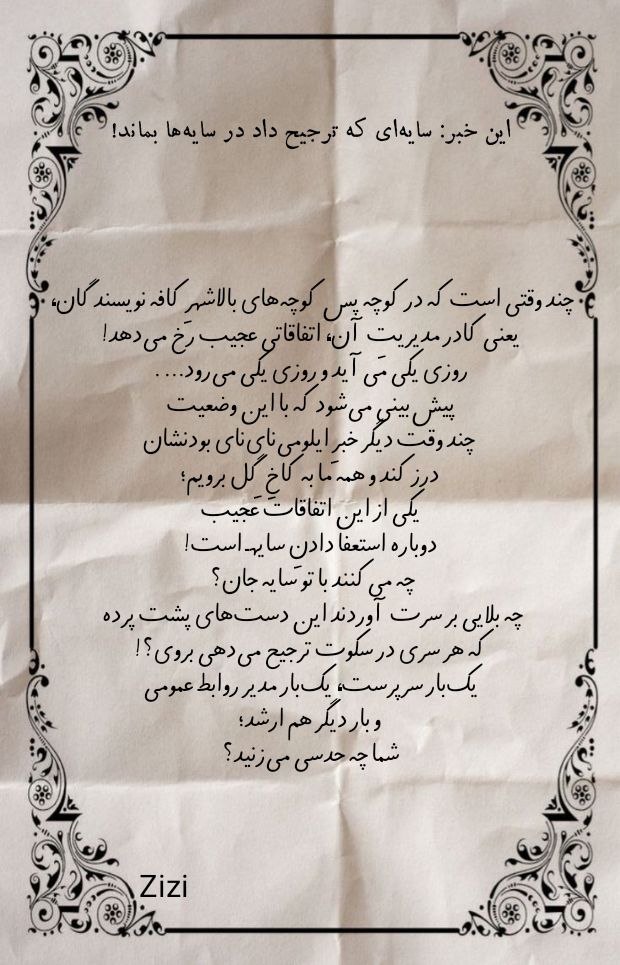 این خبر: سایه‌ای که ترجیح داد در سایه‌ها بماند!
چند وقتی است که در کوچه پس کوچه‌های بالاشهر کافه نویسندگان،
یعنی کادر مدیریت آن، اتفاقاتی عجیب رخ می‌دهد!
روزی یکی می آید و روزی یکی می‌رود....
پیش بینی می‌شود که با این وضعیت
چند وقت دیگر خبر ایلومی‌نای‌نای بودنشان
درز کند و همه ما به کاخ گل برویم؛
یکی از این اتفاقات عجیب
دوباره استعفا دادن سایه‌ است!
چه می کنند با تو سایه جان؟
چه بلایی بر سرت آوردند این دست‌های پشت پرده
که هر سری در سکوت ترجیح می‌دهی بروی؟!
یک‌بار سرپرست، یک‌بار مدیر روابط عمومی
و بار دیگر هم ارشد؛
شما چه حدسی می‌زنید؟
Zizi